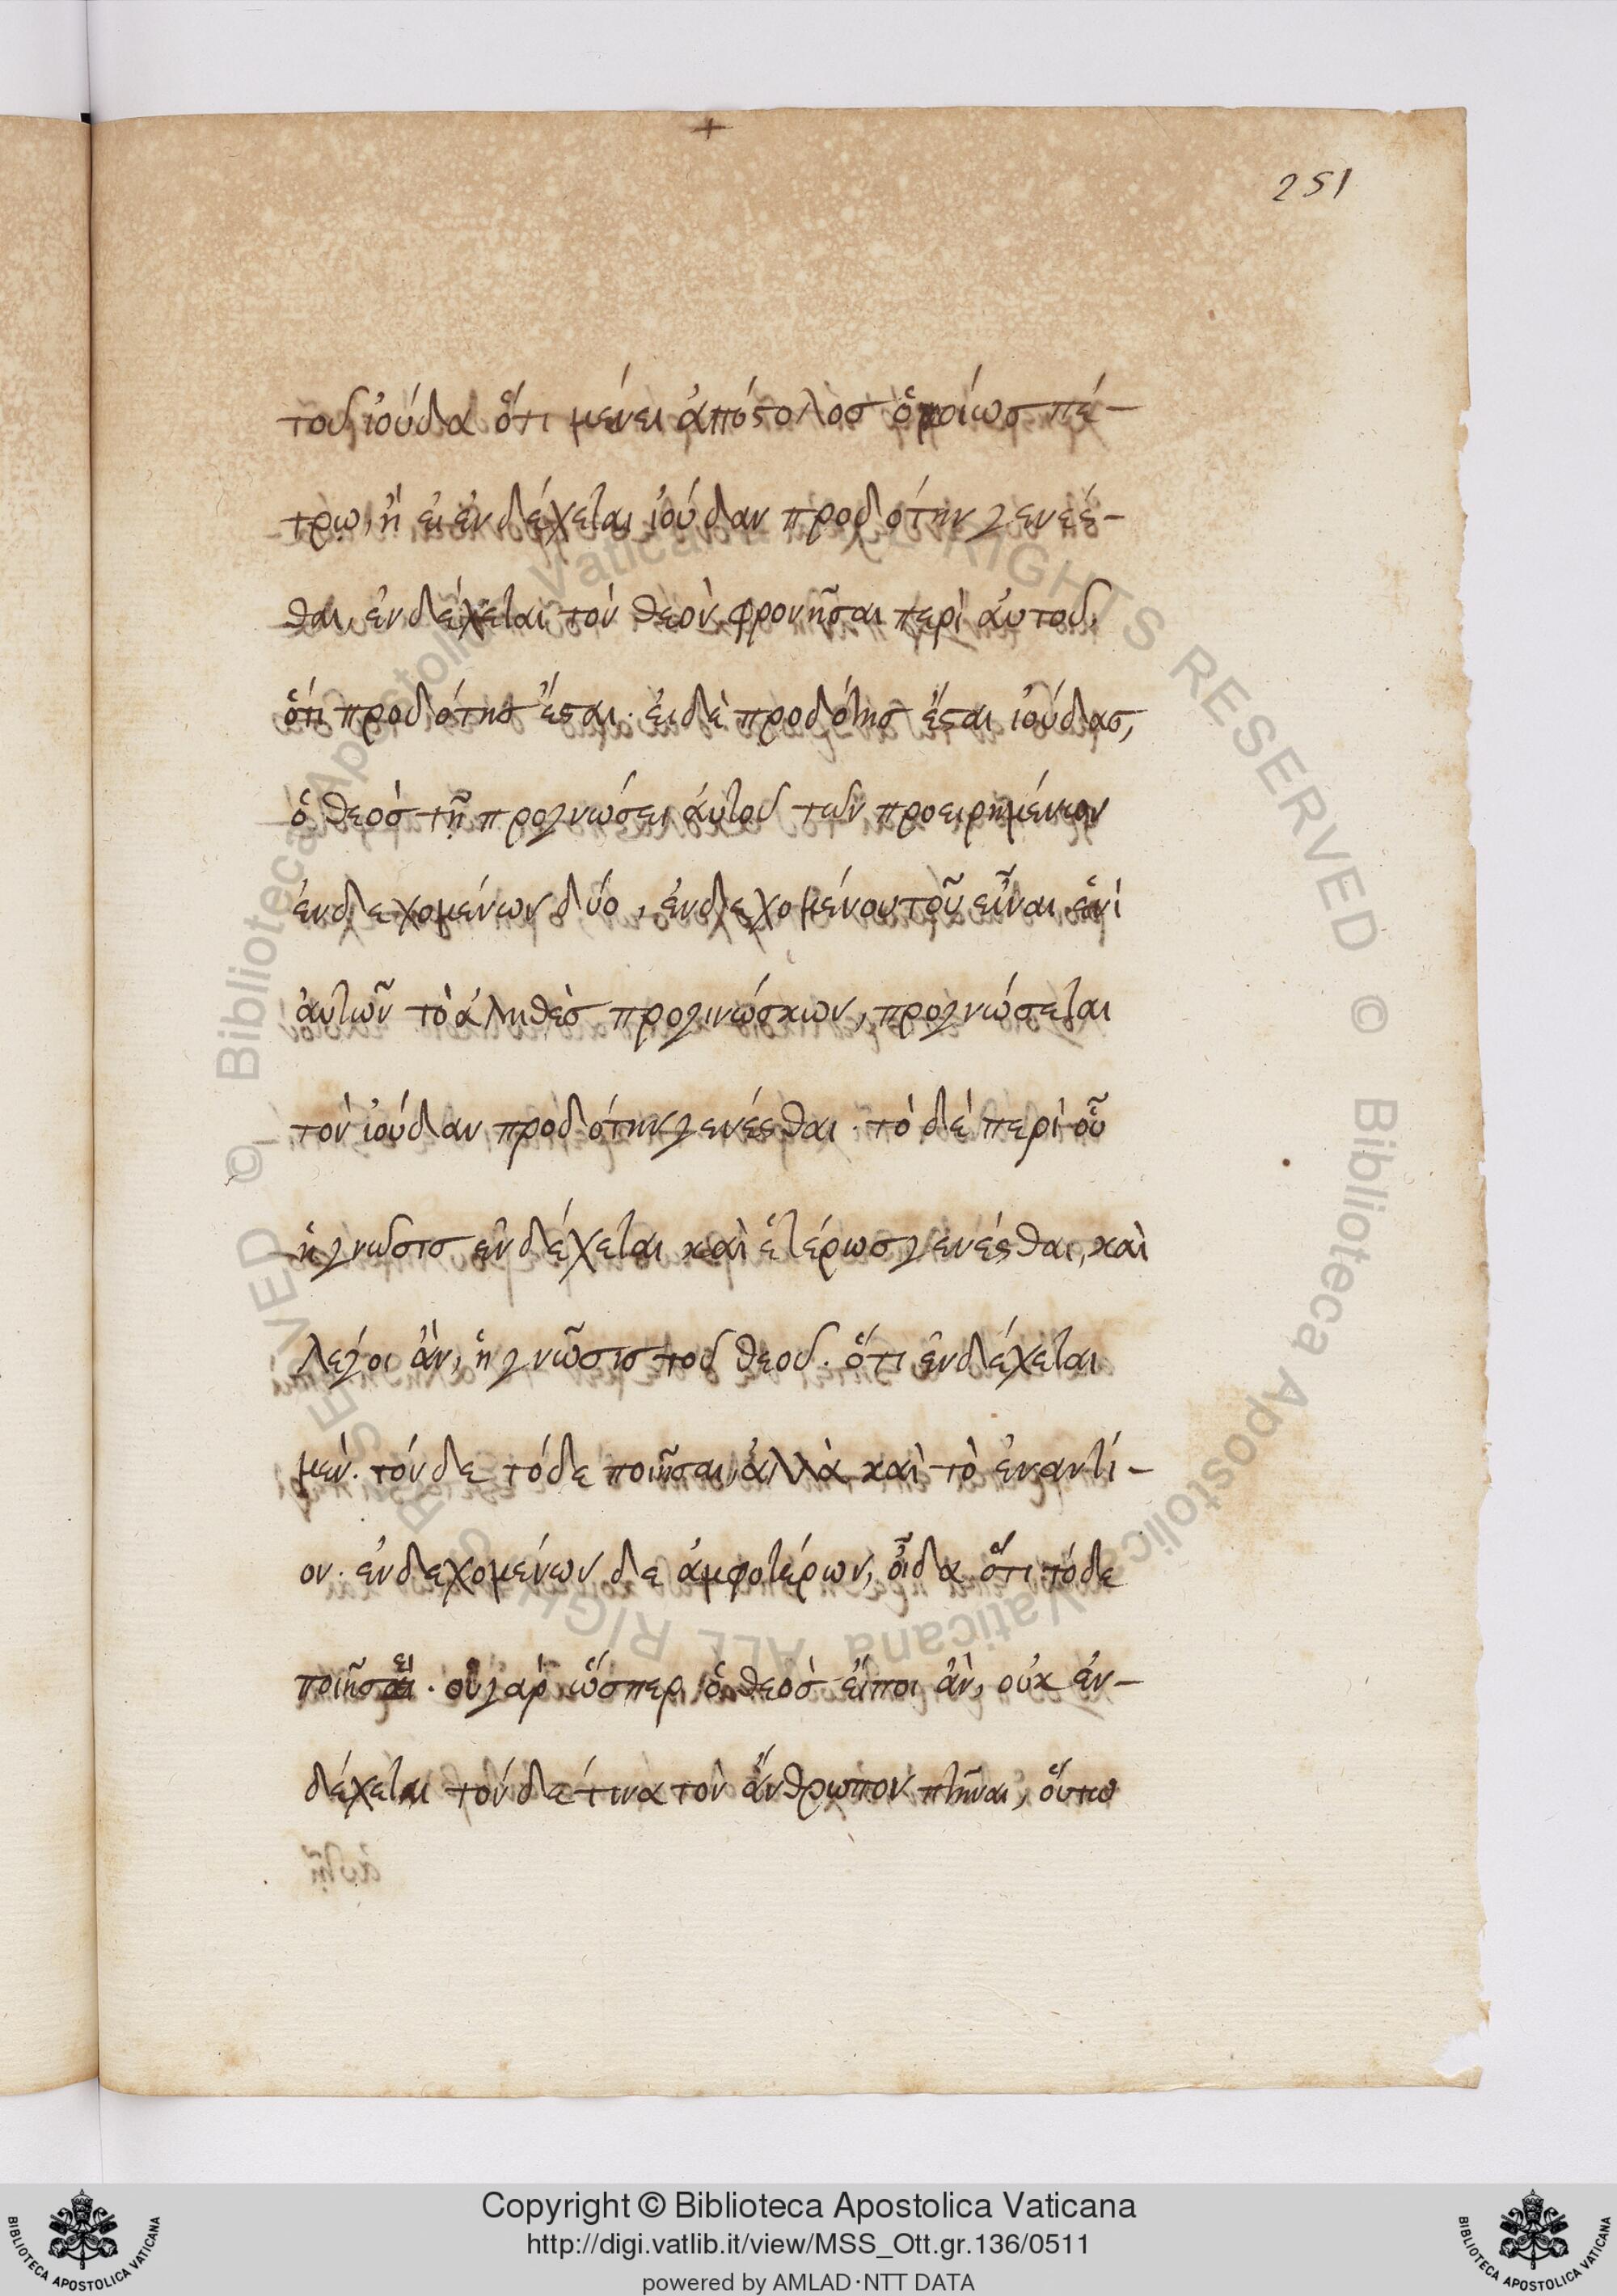 251
τοῦ ἰούδα ὅτι μένει ἀπόστολος ὁμοίως πέ-
τρω, ἢ εἰ ἐνδέχεται ἰούδαν προδότην γενέσ-
θαι, ἐνδέχεται τὸν θεὸν φρονῆσαι περὶ ἀυτοῦ,
ὅτι προδότης ἔσται. ἐι δὲ προδότης ἔσται ἰούδας,
ὁ θεὸς τῇ προγνώσει ἀυτοῦ τῶν προειρημένων
ἐνδεχομένων δύο, ἐνδεχομένου τοῦ εἶναι ἑνὶ
ἀυτῶν τὸ ἀληθὲς προγινώσκων, προγνώσεται
τὸν ἰούδαν προδότην γενέσθαι. τὸ δὲ περὶ οὗ
ἡ γνῶσις ἐνδέχεται καὶ ἑτέρως γενέσθαι, καὶ
λέγοι ἂν, ἡ γνῶσις τοῦ θεοῦ. ὅτι ἐνδέχεται
μὲν. τόνδε τόδε ποιῆσαι, ἀλλὰ καὶ τὸ ἐναντί-
ον. ἐνδεχομένων δε ἀμφοτέρων, οἶδα ὅτι τόδε
ποιῆσει. οὐ γὰρ ὥσπερ ὁ θεὸς εἴποι ἂν, οὐκ ἐν-
δέχεται τόνδε τινα τὸν ἄνθρωπον πτῆναι, οὕτω
Copyright © Biblioteca Apostolica Vaticana
http://digi.vatlib.it/view/MSS_Ott.gr.136/0511
powered by AMLAD·NTT DATA
BIBLIOTECA APOSTOLICA VATICANA
BIBLIOTECA APOSTOLICA VATICANA
© Biblioteca Apostolica Vaticana ALL RIGHTS RESERVED © Biblioteca Apostolica Vaticana ALL RIGHTS RESERVED